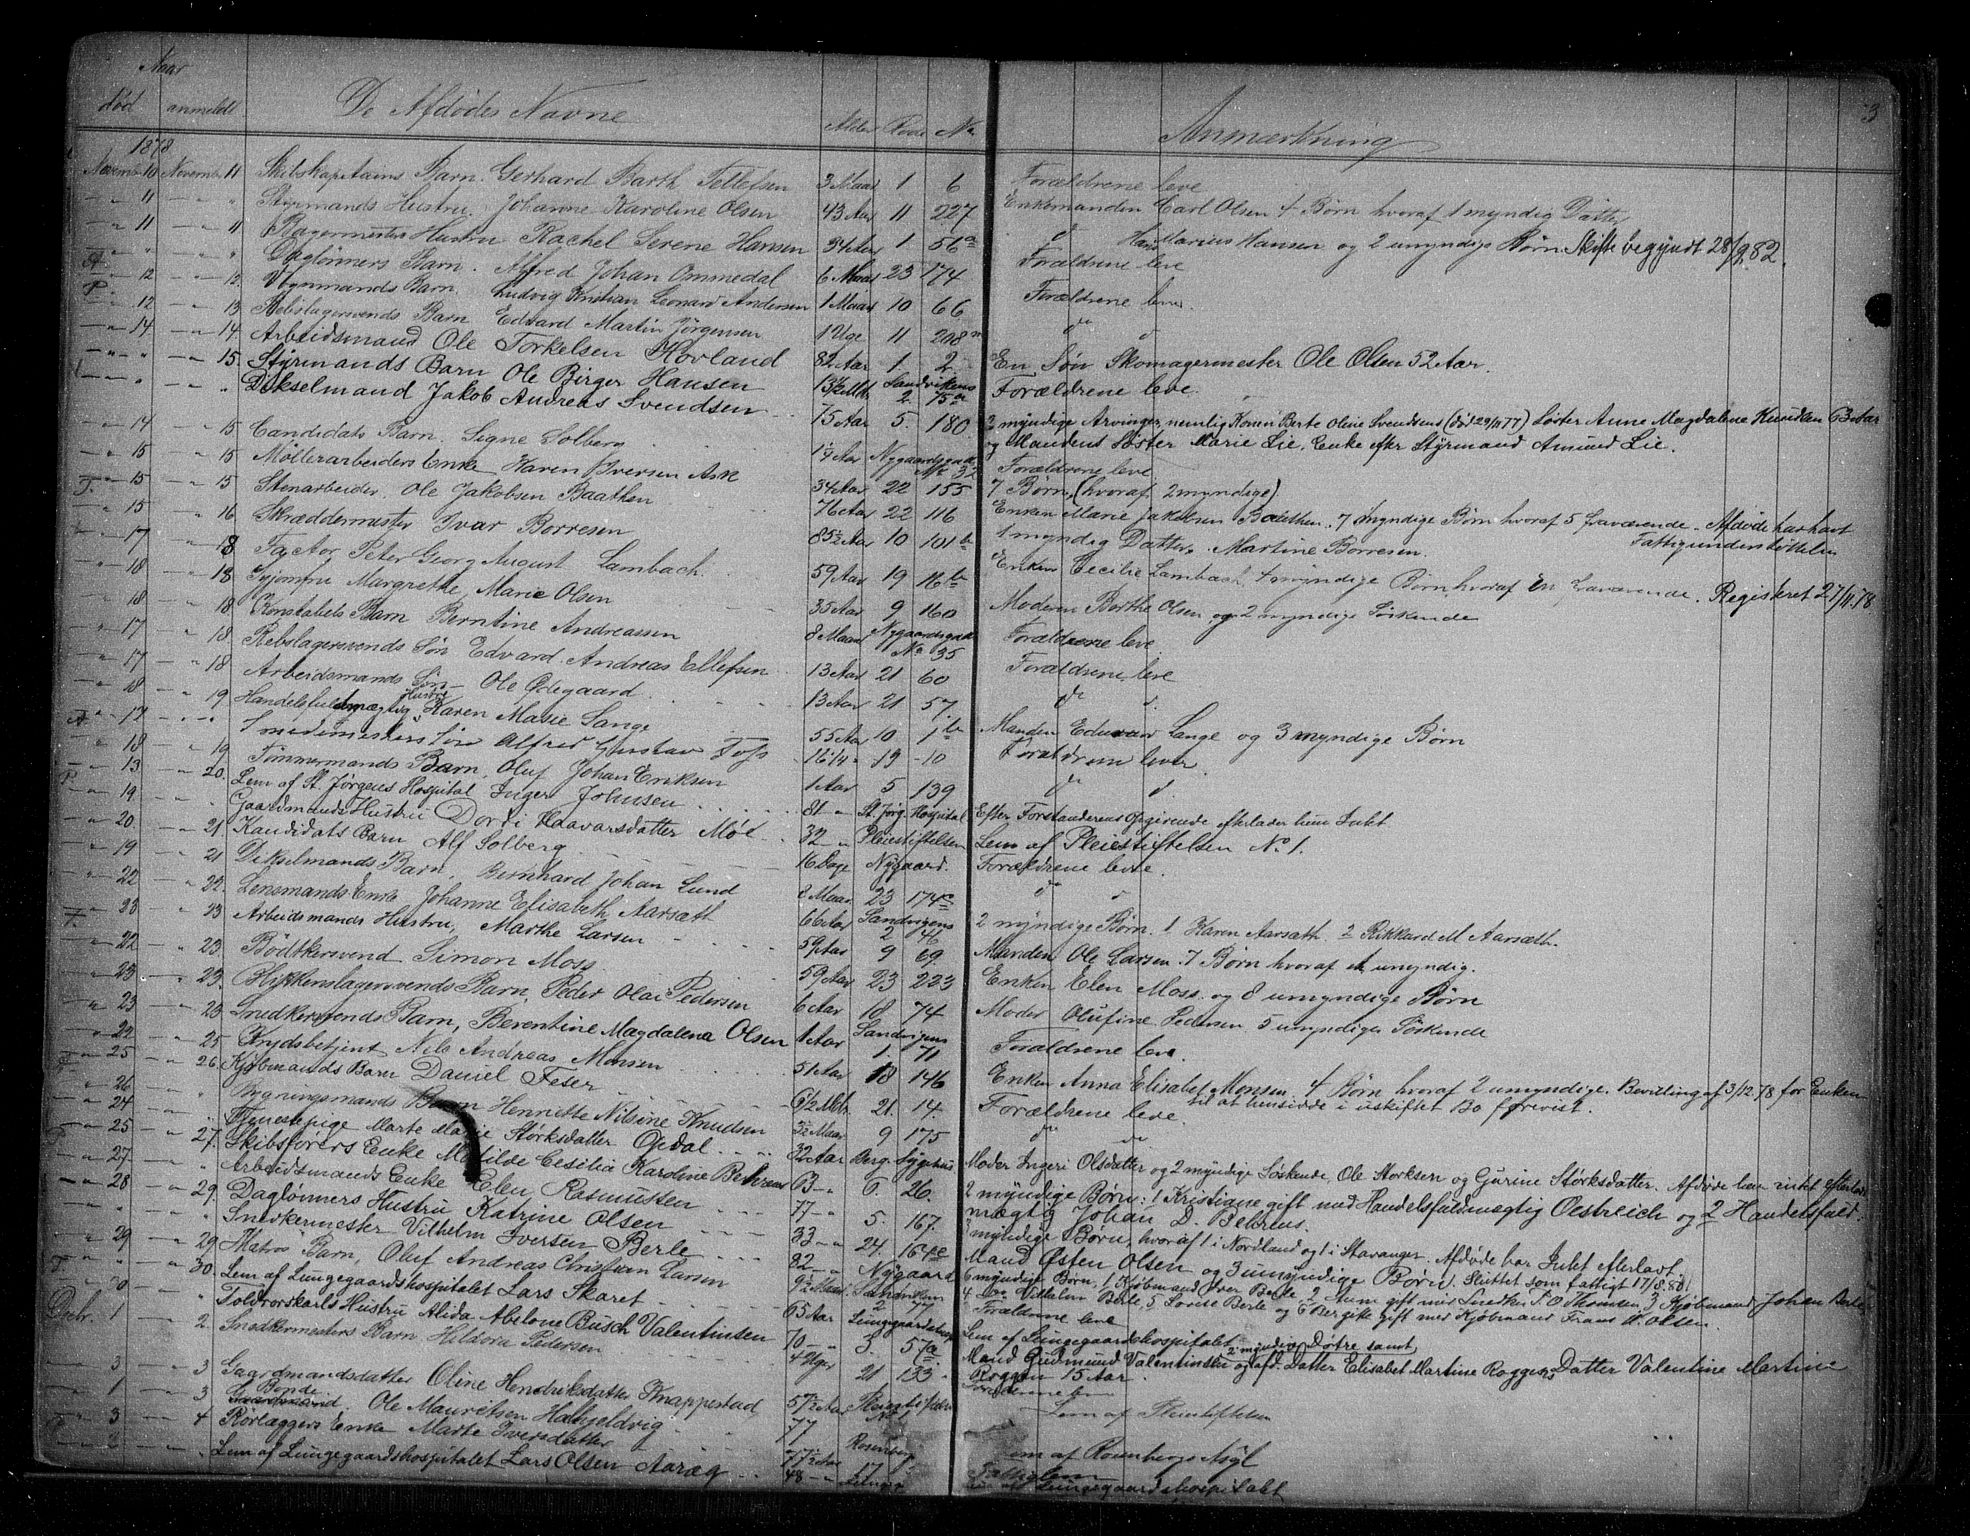 3
Naar
død anmeldt De Afdødes Navne Alder Rode No Anmærkning
1878
Novemb. 10 Novemb. 11 Skibskapitains Barn. Gerhard Barth Tellefsen 3 Maan 1 6 Forældrene leve
" 11 " " Styrmands Hustru. Johanne Karoline Olsen 43 Aar 11 227 Enkemanden Carl Olsen 4 Børn hvoraf 1 myndig Datter
" 11 " 11 Bagermesters Hustru Rachel Serene Hansen 1 56a do Marius Hansen og 2 umyndige Børn Skifte begyndt 28/9 82.
" " " " Daglønners Barn. Alfred Johan Ommedal 6 Maan 23 174 Forældrene leve
" 12 " 12. Vognmands Barn Ludvig Kristian Leonard Andersen 1 Maan 10 66 Forældrene leve
" 12 " 13 Rebslagersvends Barn Edvard Martin Jørgensen 1 Uge 11 208 do d
" 14 " 14. Arbeidsmand Ole Torkelsen Hovland 82 Aar 1. 2. En Søn Skomagermester Ole Olsen 52 Aar.
" " " 15. Styrmands Barn Ole Birger Hansen Sandvikens 2 75a Forældrene leve
" " " " Dikselmand Jakob Andreas Svendsen 75 Aar 5. 180 3 myndige Arvinger, nemlig Konen Berte Oline Svendsens (død 29/11 77) Søster Anne Magdalene Knudsen 63 Aar
og Mandens Søster Marie Lie, Enke efter Styrmand Amund Lie.
" 14 " 15 Candidats Barn. Signe Solberg Nygaardsgad No 32 Forældrene leve
" 15 " 15 Møllerarbeiders Enke Karen Iversen Ask 34 Aar 22 155 7 Børn, (hvoraf 2 myndige)
" 15 " 15 Stenarbeider. Ole Jakobsen Baathen 76 Aar 22 116 Enken Marie Jakobsen Baathen. 7 myndige Børn hvoraf 5 fraværende. Afdøde har havt
Fattigunderstøttelse
" 15 " 16 Skræddermester Ivar Borresen 85½ Aar 10 101b 1 myndig Datter. Martine Borresen.
" 17 " 18 Factor Peter Georg August Lambach 59 Aar 19 16b Enken Cecilie Lambach, 4 myndige Børn, hvoraf en fraværende. Registreret 27/11 78
" 18 " 18 Syjomfru Margrethe Marie Olsen 35 Aar 9 160 Moderen Berthe Olsen og 2 myndige Søskende
" 18 " 18. Konstabels Barn Berntine Andreassen 8 Maan Nygaardsgad No 35 Forældrene leve
" 17 " 18 Rebslagersvends Søn Edvard Andreas Ellefsen 13 Aar 21 60 Forældrene leve
" 17 " 18 Arbeidsmands Søn Ole Ødegaard 13 Aar 21 57. do d.
" 18 " 19 Handelsfuldmægtig Hustru Karen Marie Lange 55 Aar 10 1b Manden Edvard Lange og 3 myndige Børn
" 17 " " Smedemesters Søn Alfred Gustav Foss 16 1/4 " 19 10 Forældrene lever
" 18 " 19 Tømmermands Barn, Oluf Johan Eriksen 1 Aar 5 139 do d.
" 13 " 20. Lem af St. Jørgens Hospital Inger Johnsen 81 " St. Jørg. Hospital Efter Forstanderens Opgivende efterlader hun Intet
" 19 " " Gaardmands Hustru Dorti Haavarsdatter Moe 32 " Pleiestiftelsen Lem af Pleiestiftelsen No 1.
" 20 " 21 Kandidats Barn Alf Solberg 16 Dage Nygaard. Forældrene leve.
" 19 " 21 Dikselmands Barn. Bernhard Johan Lund 2 Maan 23 174c do d
" 22 " 22. Lensmands Enke Johanne Elisabeth Aarsæth 66 Aar Sandvigens 2 46 2 myndige Børn. 1 Karen Aarsæth. 2 Rikkard M Aarsæth.
" 23 " 23 Arbeidsmands Hustru, Marthe Larsen 59 Aar 9 69. Manden Ole Larsen 7 Børn hvoraf et umyndig.
" 22 " 23. Bødtkersvend Simon Moss 59 Aar 23 223 Enken Elen Moss og 8 umyndige Børn
" 23 " 23. Blikkenslagersvends Barn, Peder Olai Pedersen 6 Aar 18 74 Moder Olufine Pedersen 5 umyndiges Søskende
" 23 " 23. Snedkersvends Barn, Berentine Magdalena Olsen 1 Aar Sandvigens 1. 71 Forældrene leve.
" 22 " 25 Krydsbetjent Nils Andreas Monsen 51 Aar 18 146 Enken Anna Elisabet Monsen 4 Børn hvoraf 2 umyndige. Bevilling af 3/12.78 for Enken
til at hensidde i uskiftet Bo forevist.
" 25 " 26. Kjøbmands Barn Daniel Feser 6½ Mdr. 21. 14. Forældrene leve.
" 26 " " Bygningsmands Barn Henriette Nilsine Knudsen 3½ Maan 9 175 do do
" 24 " Tjenestepige Marte Marie Størksdatter Opdal 32 Aar Berg. Sygehus Moder Ingeri Olsdatter og 2 myndige Søskende, Ole Storksen og Gurine Størksdatter. Afdøde har intet efterladt
" 25 " 27. Skibsførers Enke Matilde Cesilia Karoline Behrens 63 " 6. 26. 2 myndige Børn: 1 Kristiane gift med Handelsfuldmægtig Oestreich og 2 Handelsfuld.
mægtig Johan D. Behrens.
" 27 " " Arbeidsmands Enke Elen Rasmussen 77 " 5. 167. 3 myndige Børn, hvoraf 1 i Nordland og 1 i Stavanger. Afdøde har Intet efterladt.
" 28 " 29. Dagløners Hustru Katrine Olsen 33 " 24. 164e Mand Østen Olsen og 3 umyndige Børn. Skiftet som fattigt 17/8.81
" " " Snedkermester Vilhelm Iversen Berle 82 " Nygaard 6 myndige Børn, 1 Kjøbmand Iver Berle, 2 gift med Snedker T. O. Thomsen, 3 Kjøbmand Johan Berle
4 Vilhelm Berle, 5 Lovise Berle og 6 Bergitte gift med Kjøbmand Frans W. Olsen.
" 29 " 29. Matros Barn, Oluf Andreas Christian Larsen 9½ Maan Sandviken 2 Forældrene leve
" " " 30. Lem af Lungegaardshospitalet Lars Skaret 65 Aar Lungegaardshosp Lem af Lungegaardshospitalet
" 30 " " Toldrorskarls Hustru Alida Abelone Busch Valentinsen 70 " 3. 57a Mand Gudmund Valentinsen 2 myndige Døtre samt og afd. Datter Elisabet Martine Roggens Datter Valentine Martine
Roggen 15 Aar.
Decbr. 1 " 2 Snedkermesters Barn Heldora Pedersen 4 Uger 21 133 Forældrene leve
" 3 " 3 Gaardmandsdatter Oline Hendriksdatter Knappestad 57½ Aar Pleiestiftelsen No 1 Lem af Pleiestiftelsen
" 1 " 3 Bonde Ole Mauritsen Hatjeldvig 77
" 3 " 4 Rorlæggers Enke Marte Iversdatter 77½ Aar Rosenberg em af Rosenbergs Asyl
" 2 " " Lem af Lungegaardshospitalet Lars Olsen Aaræg 48 " Lungeg af Lungegaardshospitalet